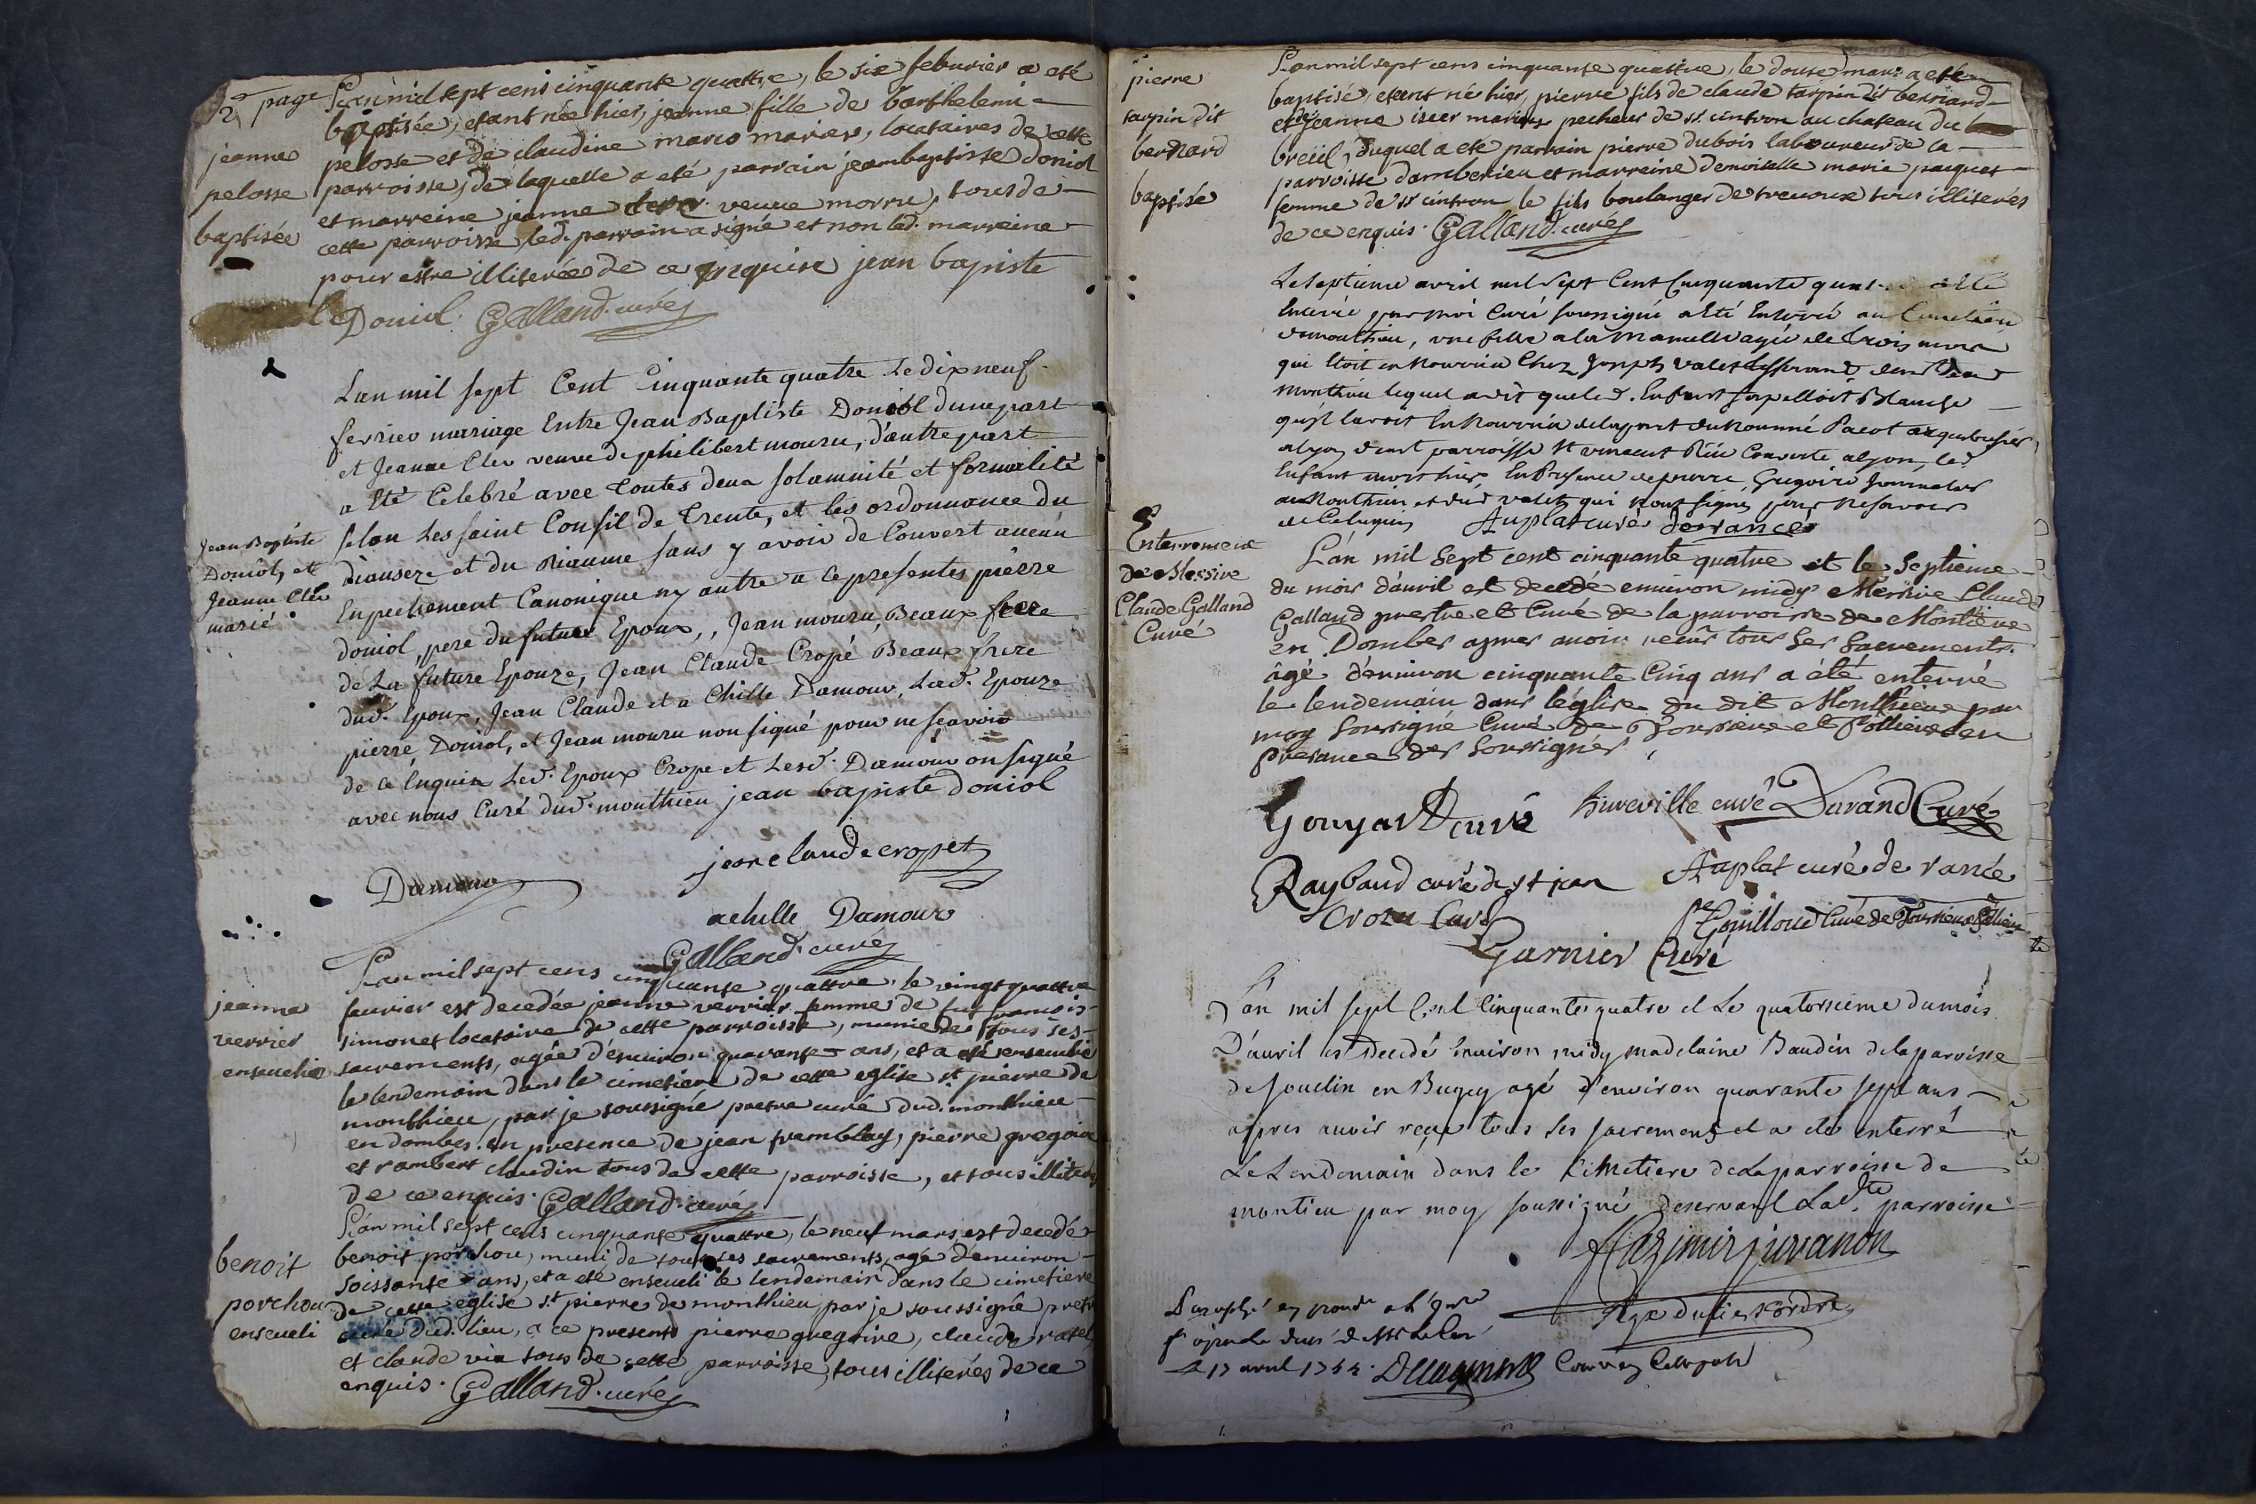 2e page
L'an mil sept cens cinquante quattre, le six feburier a eté
baptisée, etant née hier, jeanne fille de barthelemi
pelosse et de claudine marco mariés, locataires de cette
parroisse, de laquelle a eté parrain jeambaptiste doniol
et marreine jeanne cler veuve morru, tous de
cette parroisse led. parrain a signé et non lad. marreine
pour estre illiterée de ce enquise jean bapiste
Doniol Galland curé
jeanne
pelosse
baptisée
Lan mil sept Cent Cinquante quatre Le dix neuf
fevrier mariage Entre Jean Baptiste Doniol dune part
et Jeanne Cler veuve de philibert mouru, d'autre part
a Eté Celebré avec Toutes deux solamnité et formalité
selon Les saint Consil de Trente, et les ordonnance du
dioauseze et du Riaume sans y avoir de Couvert aucun
Enpechement Canonique ny autre a ce presentes pierre
doniol, pere du futur Epoux,, Jean mouru, Beaux frere
de La future Epouze, Jean Claude Cropé Beaux frere
dud. Epoux, Jean Claude et a Chille Damour, Lad. Epouze
pierre Doniol, et Jean mouru non signé pour ne sçavoir
de ce Enquin Led. Epoux Crope et Lesd. Damour on signé
avec nous Curé dud. monthieu jean bapiste doniol
Jean Baptiste
Doniol, et
Jeanne Cler
marié
jean claude cropet
Damour
achille Damour
Galland curé
L'an mil sept cens cinquante quattre, le vingt quattre
feuvrier est decedée jeanne verrier femme de fut francois
simonet locataire de cette parroisse, munie de tous ses
sacrements, agée d'environ quarante ans, et a eté ensevelie
le lendemain dans le cimetiere de cette eglise st. pierre de
monthieu, par je soussigné pretre curé dud. monthieu
en dombes. en presence de jean tramblay, pierre gregoire
et rambert claudin tous de cette parroisse, et tous illiterés
de ce enquis. Galland curé
jeanne
verrier
ensevelie
L'an mil sept cens cinquante quattre, le neuf mars est decedé
benoit porchou, muni de tous ses sacrements, agé d'environ
soissante ans, et a eté enseveli le lendemain dans le cimetiere
de cette eglise st. pierre de monthieu, par je soussigné pretre
curé dud. lieu, a ce present pierre gregoire, claude ratel
et claude via tous de cette parroisse, tous illiterés de ce
enquis. Galland curé
benoit
porchou
enseveli
L'an mil sept cens cinquante quattre, le douse mars a eté
baptisé, etant né hier, pierre fils de claude tarpin dit bernard
et de jeanne iser mariés pecheur de sr. cintron au chateau du
breüil, duquel a eté parrain pierre dubois laboureur de la
parroisse damberieu et marreine demoiselle marie paquet
femme de sr cintron le fils boulanger de trevoux tous illiterés
de ce enquis. Galland curé
pierre
tarpin dit
bernard
baptisé
Le septieme avril mil sept Cent Cinquante quat a Eté
Enterré par moi Curé soussigné a Eté Enterré au Cimetiere
de monthieu, une fille a la Mamelle agée de Trois mois
qui Etoit en Nourrice Chez Joseph Valet
Monthieu lequel a dit que led. Enfant s'apelloit Blanche
qu'il lavoit En Nourrice de la part du Nommé Pacot arquebusier
a lyon dont parroisse St vincent Rüe Couverte a lyon, led.
Enfant mort hier En Presence de pierre Gregoire Journalier
au Monthieu et dud valet qui n'ont signé pour Ne sçavoir
de ce Enquis Auplat curé de rancé
L'an mil sept cent cinquante quatre et le septieme
du mois d'avril est decedé environ midy Messire Claude
Galland prestre et Curé de la parroisse de Montieux
en Dombes apres avoir reçus tous ses sacrements
âgé d'environ cinquante Cinq ans a été enterré
le lendemain dans l'église du dit Monthieux par
moy soussigné Curé de Poussieux et Pollieux en
presance des soussignés
Enterrement
de Messire
Claude Galland
Curé
Gouyard curé hureville curé Durand Curé
Raybaud curé de st jean Auplat curé de rancé
Crozu Curé
Gouilloud Curé de
Garnier Curé
L'an mil sept Cent Cinquante quatre et Le quatorsieme du mois
D'avril est Decedé Environ midy madelaine Baudin de la paroisse
de Joudin en Bugey agé d'environ quarante sept ans
appres avoir reçue tous ses sacrements et a été enterré
Le Lendemain dans le Cimetiere de La parroisse de
montieu par moy soussigné deservant Lad.te parroisse
Cazimir juvanon
17 avril 1754